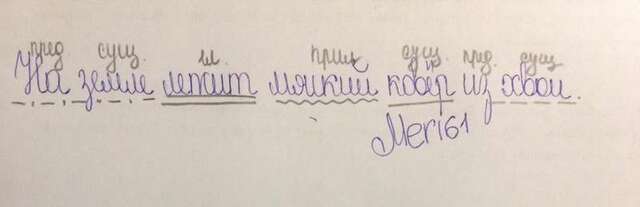 пред. сущ. гл. прил. сущ. пред. сущ.
На земле лежит мягкий ковёр из хвои.
Meri61